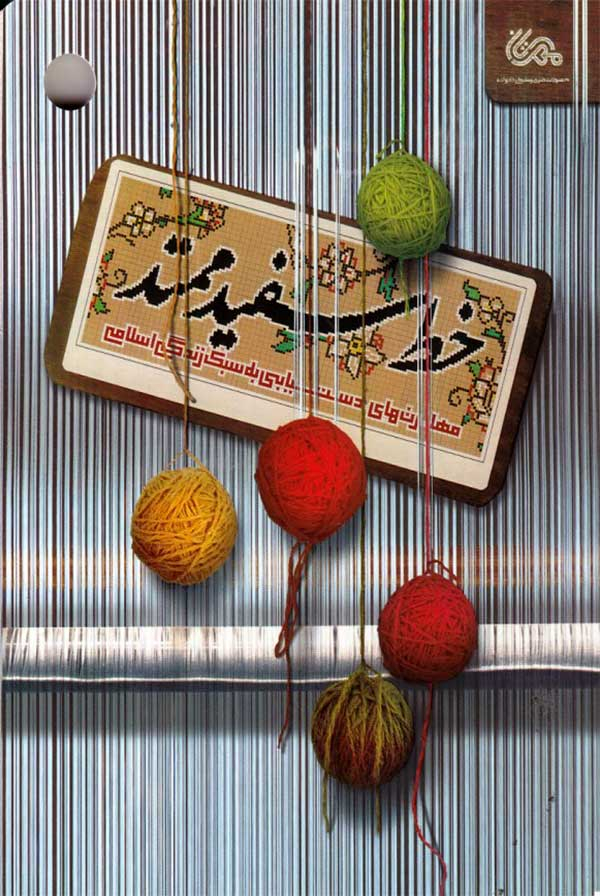 خط سفید ممتد
مهارت‌های دست‌یابی به سبک زندگی اسلامی